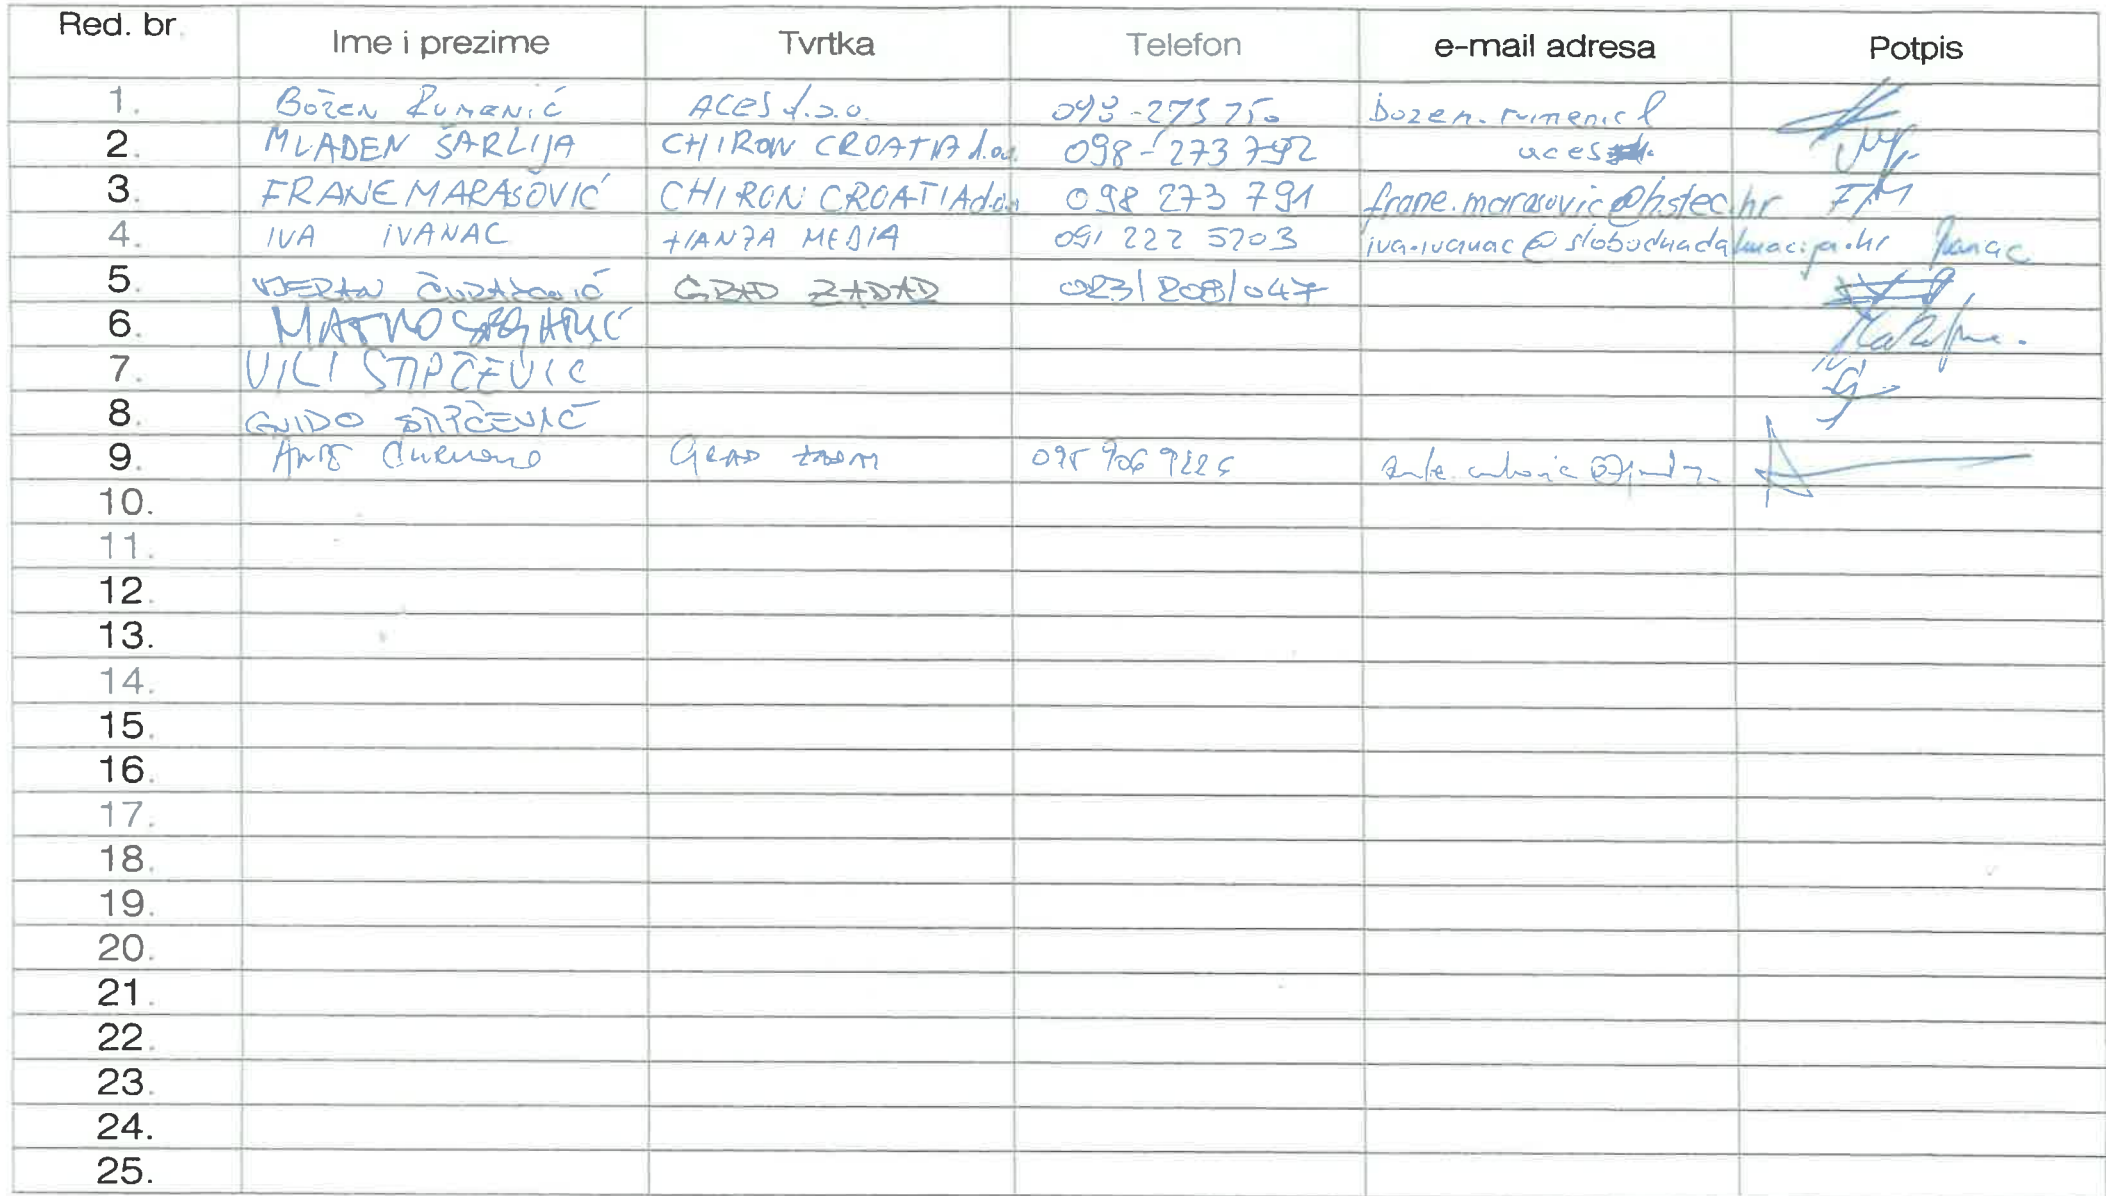 Red. br. Ime i prezime Tvrtka Telefon e-mail adresa Potpis
1. Božen Rumenić ACES d.o.o. 098-273 750 bozen.rumenic
2. MLADEN ŠARLIJA CHIRON CROATIA d.o.o. 098-273 792 aces
3. FRANE MARASOVIĆ CHIRON CROATIA d.o.o. 098 273 791 frane.marasovic@hstec.hr FM
4. IVA IVANAC HANZA MEDIA 091 222 5703 iva.ivanac@slobodnadalmacija.hr Ivanac
5. VJERAN GRAD ZADAR 023/208/047
6. MATKO
7. VILI STIPČEVIC
8. GUIDO STIPČEVIĆ
9. GRAD ZADAR
10.
11.
12.
13.
14.
15.
16.
17.
18.
19.
20.
21.
22.
23.
24.
25.